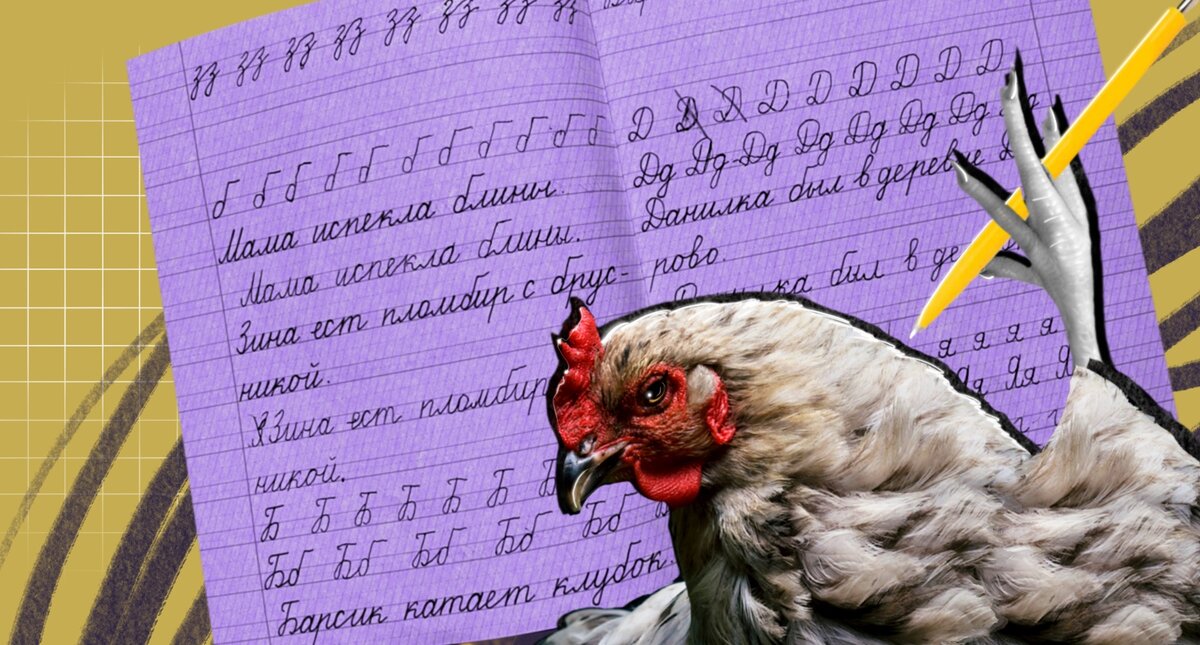 зз зз зз зз зз зз зз зз
б б б б б б б б б б б
Мама испекла блины.
Мама испекла блины.
Зина ест пломбир с брус-
никой.
Зина ест пломбир
никой.
Б Б Б Б Б Б
Бб Бб Бб Бб Бб
Барсик катает клубок.
Д Д Д Д Д Д Д Д Д
Дд Дд Дд Дд Дд Дд Дд
Данилка был в деревне
рово
был в де
я я я я
Яя Яя Я